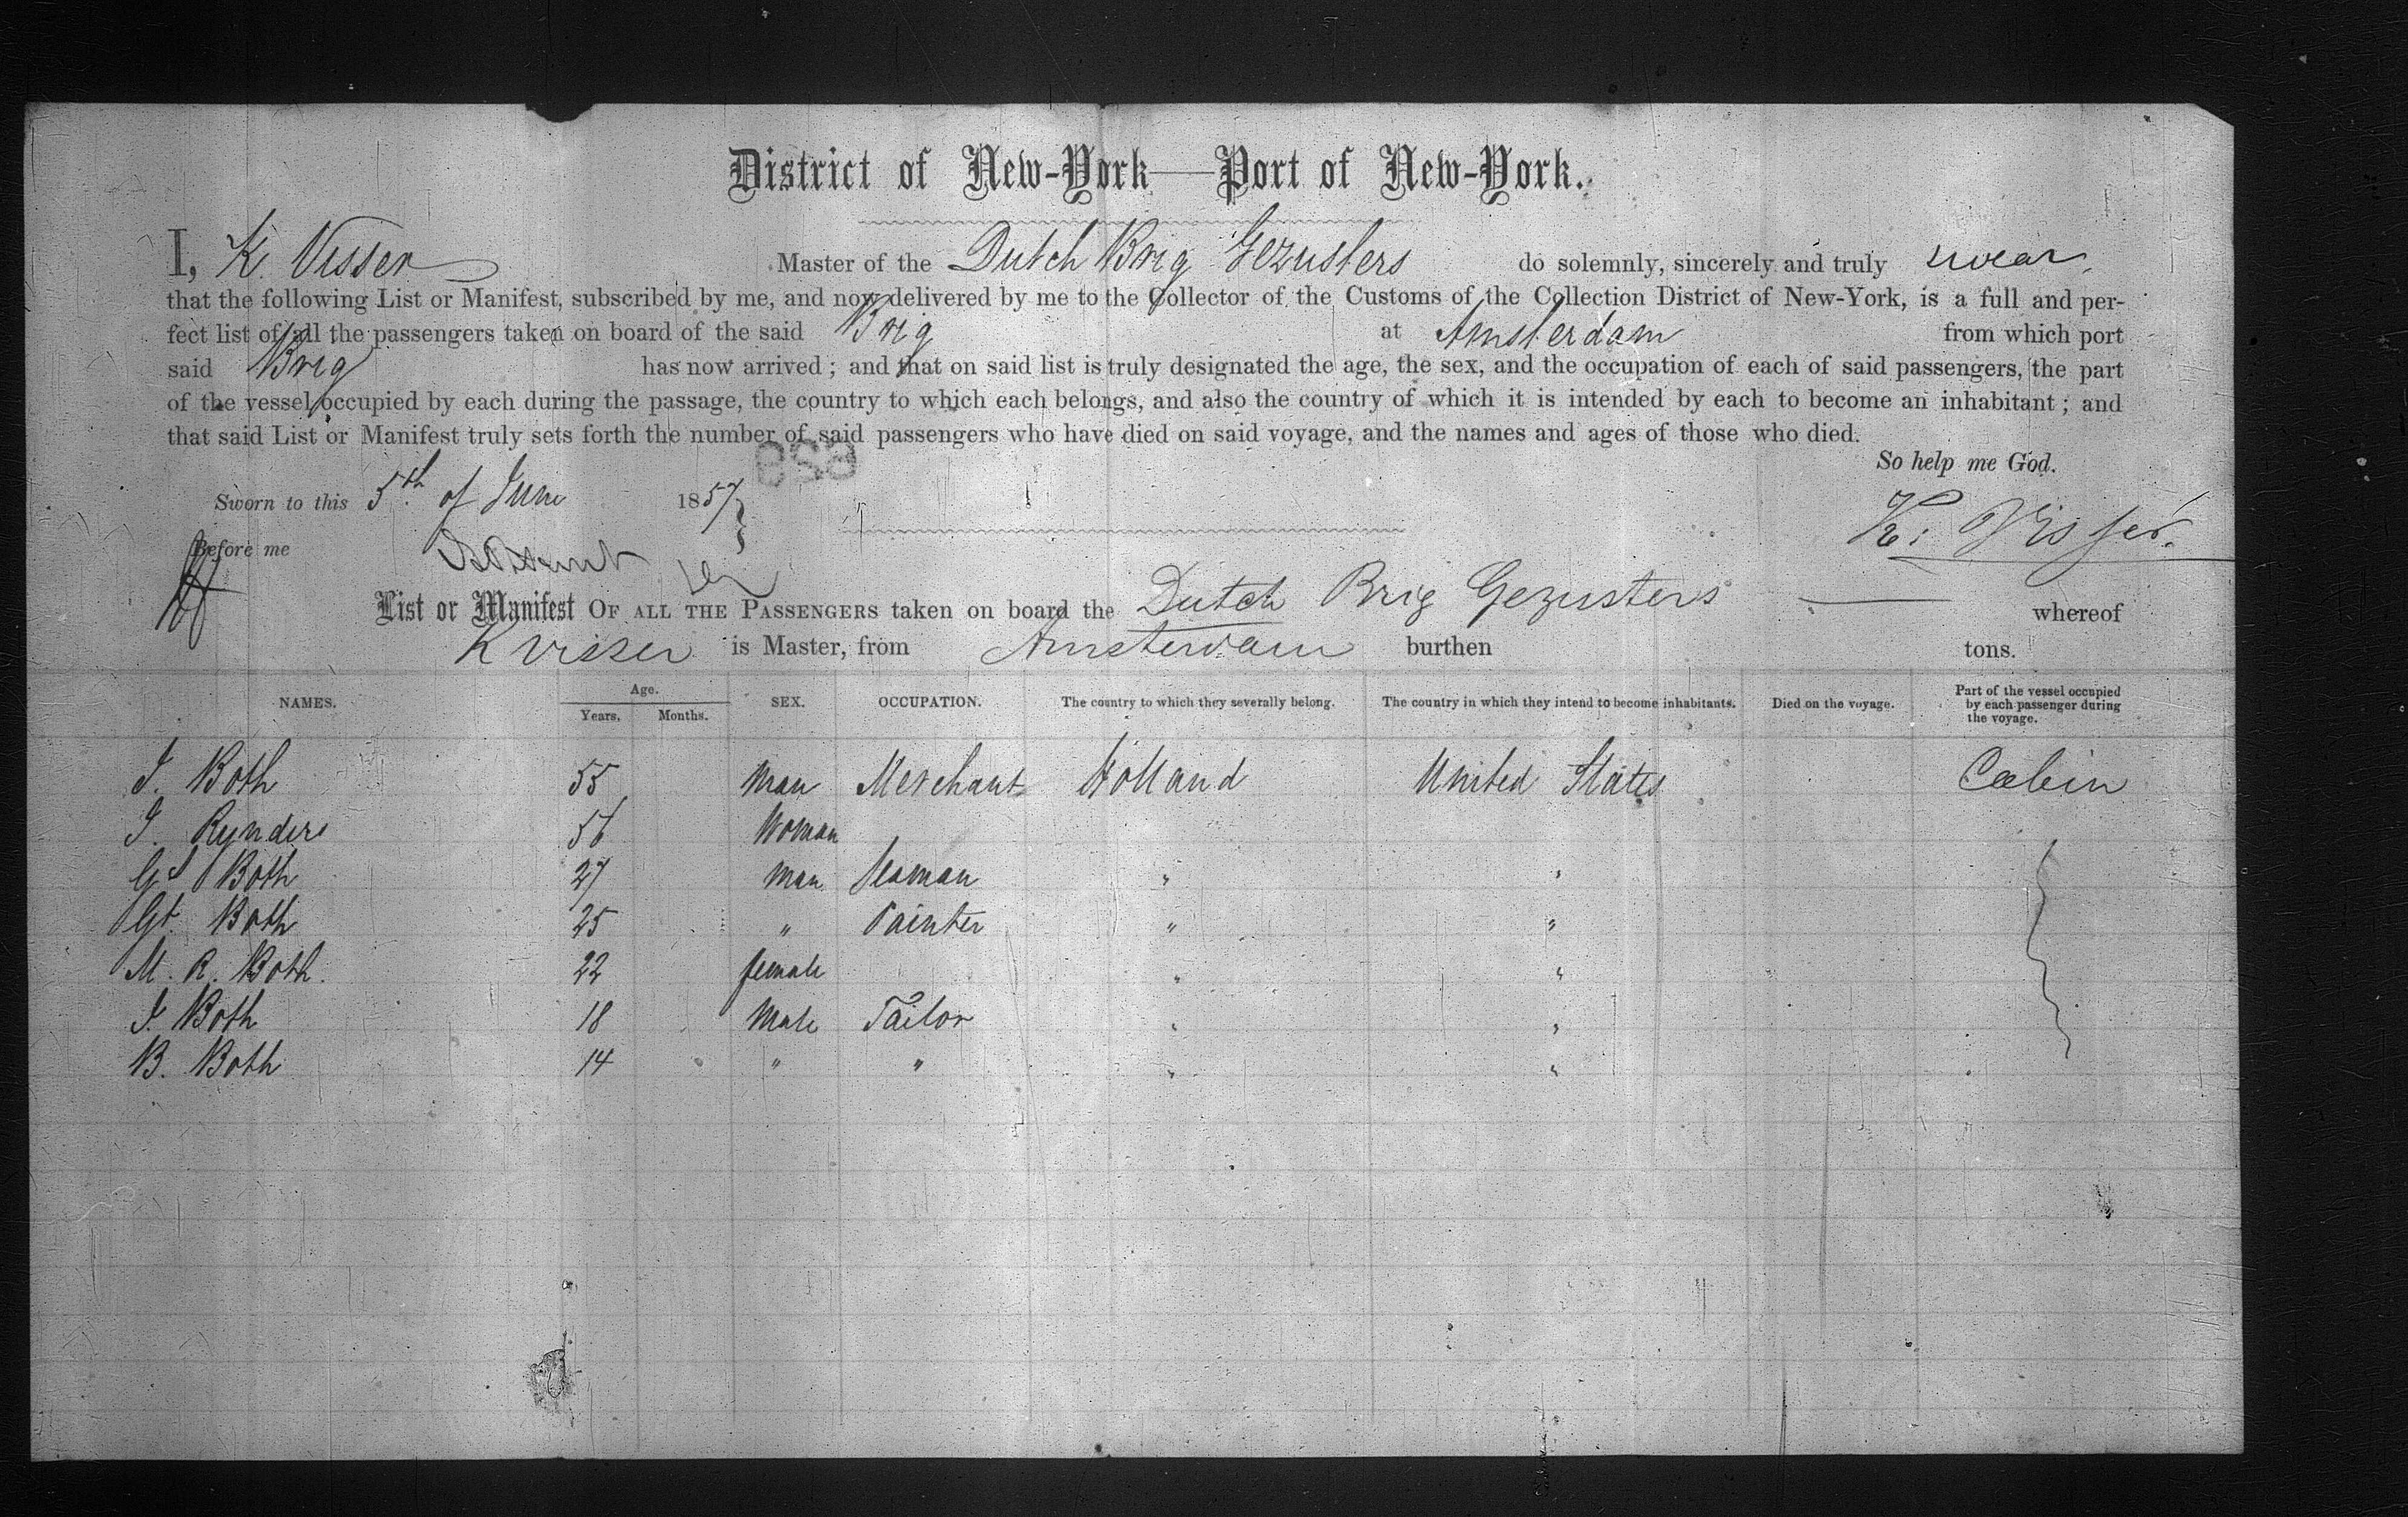 District of New-York—Port of New-York.
I, K. Visser Master of the Dutch Brig Gezusters do solemnly, sincerely and truly swear,
that the following List or Manifest, subscribed by me, and now delivered by me to the Collector of the Customs of the Collection District of New-York, is a full and per-
fect list of all the passengers taken on board of the said Brig at Amsterdam from which port
said Brig has now arrived; and that on said list is truly designated the age, the sex, and the occupation of each of said passengers, the part
of the vessel occupied by each during the passage, the country to which each belongs, and also the country of which it is intended by each to become an inhabitant; and
that said List or Manifest truly sets forth the number of said passengers who have died on said voyage, and the names and ages of those who died.
So help me God.
629
Sworn to this 5th of June 1857
K: Visser.
Before me
List or Manifest OF ALL THE PASSENGERS taken on board the Dutch Brig Gezusters whereof
K Visser is Master, from Amsterdam burthen tons.
NAMES. Age. Years. Months. SEX. OCCUPATION. The country to which they severally belong. The country in which they intend to become inhabitants. Died on the voyage. Part of the vessel occupied by each passenger during the voyage.
J. Both 55 Man Merchant Holland United States Cabin
J. Rynders 56 Woman
Gs Both 27 Man Seaman " "
Gt. Both 25 " Painter " "
M. R. Both. 22 female " "
J. Both 18 Male Tailor " "
B. Both 14 " " " "